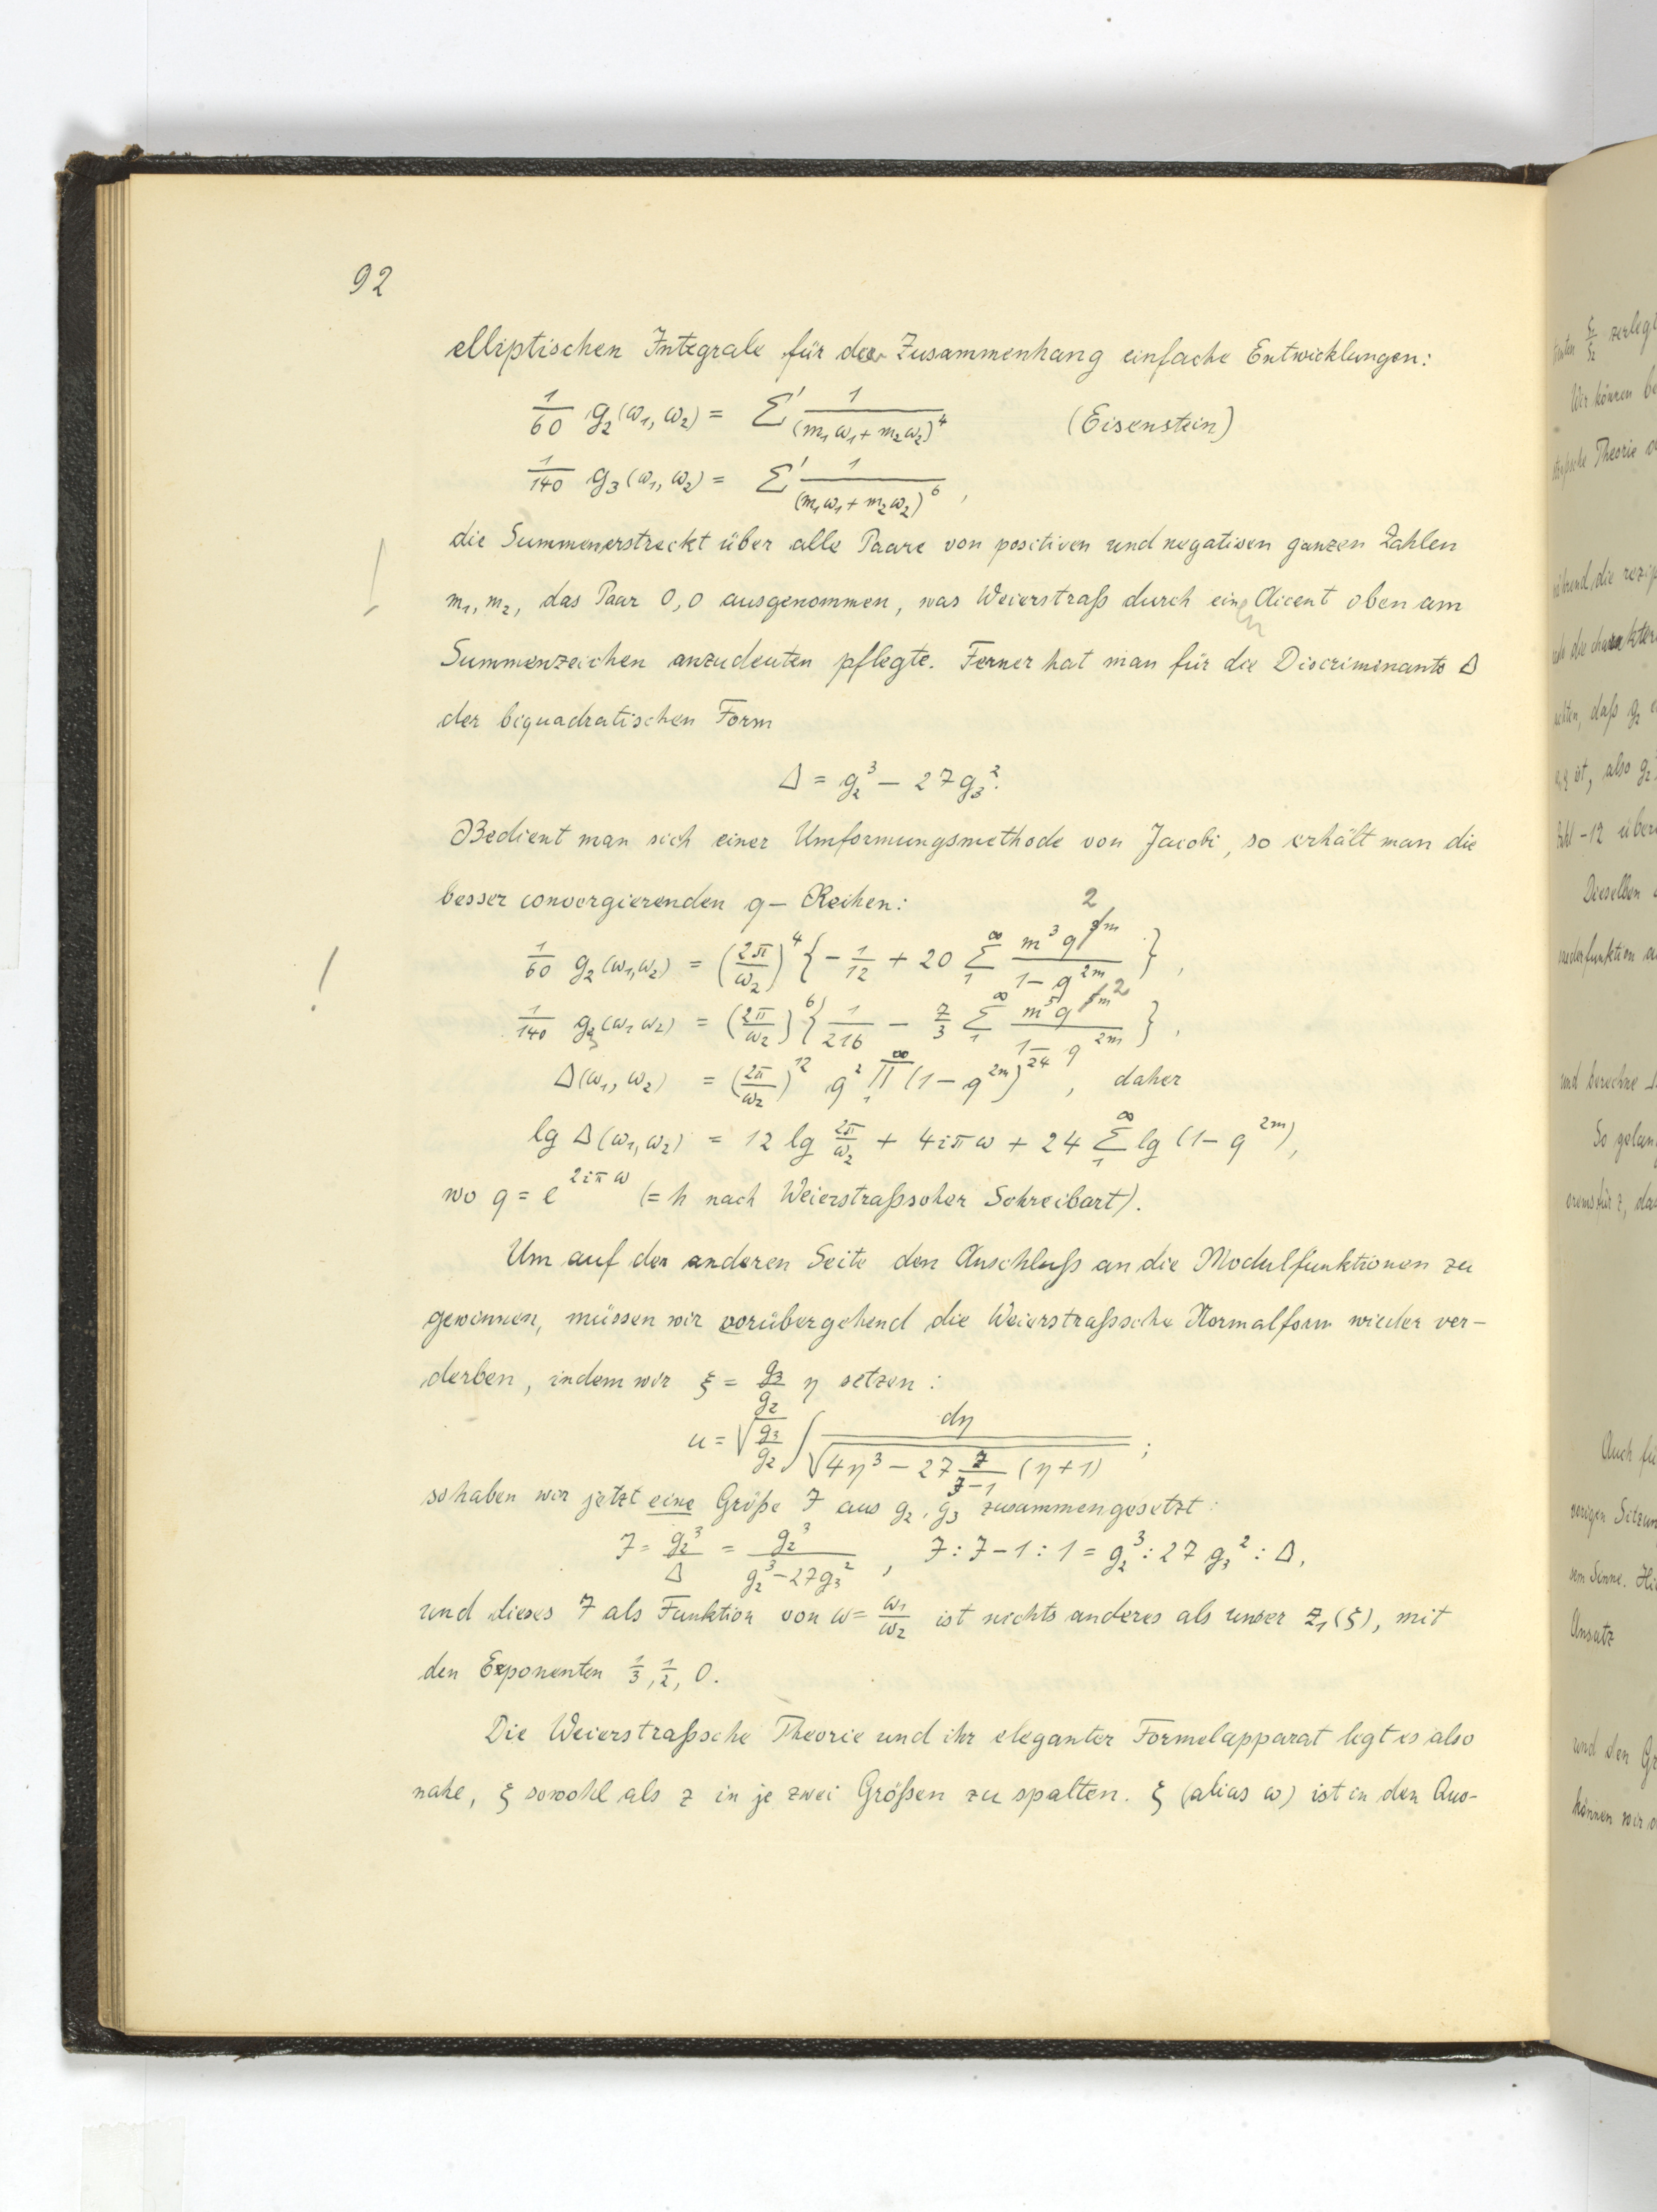 92
elliptischen Integrale für den Zusammenhang einfache Entwicklungen:
1/60 g₂(ω₁, ω₂) = Σ' 1/(m₁ω₁ + m₂ω₂)⁴ (Eisenstein)
1/140 g₃(ω₁, ω₂) = Σ' 1/(m₁ω₁ + m₂ω₂)⁶ ,
die Summenerstreckt über alle Paare von positiven und negativen ganzen Zahlen
m₁, m₂, das Paar 0,0 ausgenommen, was Weierstraß durch einen Akcent oben am
Summenzeichen anzudeuten pflegte. Ferner hat man für die Discriminante Δ
der biquadratischen Form
Δ = g₂³ – 27 g₃².
Bedient man sich einer Umformungsmethode von Jacobi, so erhält man die
besser convergierenden q– Reihen:
1/60 g₂(ω₁,ω₂) = (2π/ω₂)⁴ { – 1/12 + 20 Σ₁^∞ m³q^2m / 1–q^2m } ,
! 1/140 g₃(ω₁ ω₂) = (2π/ω₂)⁶ { 1/216 – 7/3 Σ₁^∞ m⁵q^2m / 1–q^2m } ,
Δ(ω₁, ω₂) = (2π/ω₂)¹² q² Π₁^∞ (1–q^2m)²⁴ , daher
lg Δ(ω₁,ω₂) = 12 lg 2π/ω₂ + 4iπω + 24 Σ₁^∞ lg (1–q^2m),
wo q = e^2iπω (= h nach Weierstraßscher Schreibart).
Um auf der anderen Seite den Anschluß an die Modulfunktionen zu
gewinnen, müssen wir vorübergehend die Weierstraßsche Normalform wieder ver–
derben, indem wir ξ = g₃/g₂ η setzen:
u = √(g₃/g₂) ∫ dη / √(4η³ – 27 J/(J–1) (η+1)) ;
so haben wir jetzt eine Größe J aus g₂, g₃ zusammengesetzt:
J = g₂³/Δ = g₂³/(g₂³–27g₃²) , J : J–1 : 1 = g₂³ : 27 g₃² : Δ,
und dieses J als Funktion von ω = ω₁/ω₂ ist nichts anderes als unser z₁(ξ), mit
den Exponenten 1/3, 1/2, 0.
Die Weierstraßsche Theorie und ihr eleganter Formelapparat legt es also
nahe, ξ sowohl als z in je zwei Größen zu spalten. ξ (alias ω) ist in den Aus–